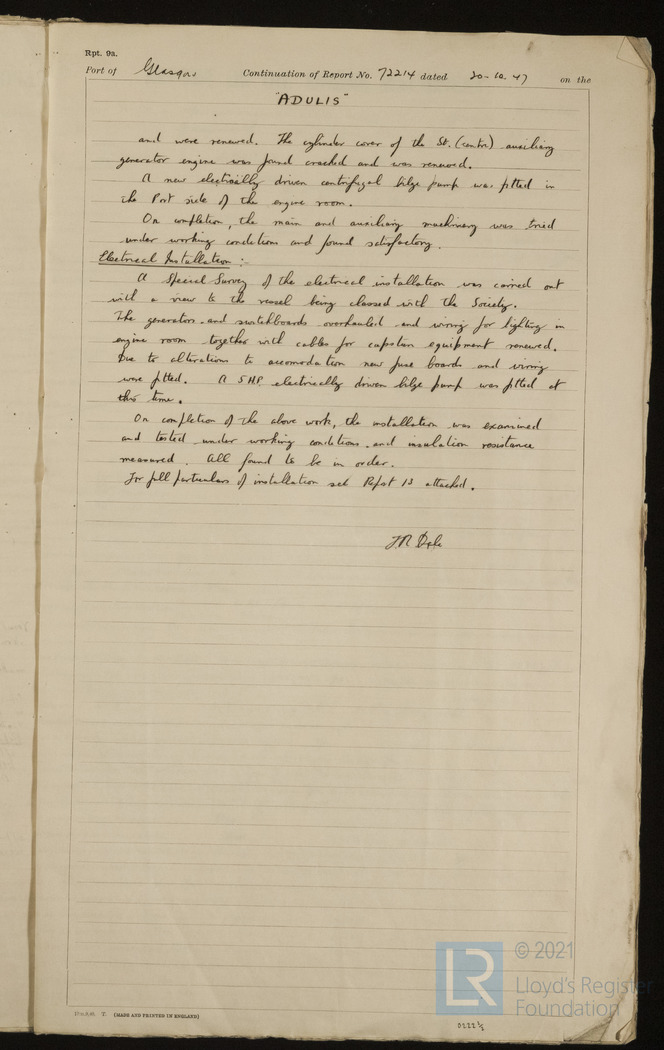 Rpt. 9a.
Port of Glasgow Continuation of Report No. 72214 dated 20-10-47 on the
"ADULIS"
and were renewed. The cylinder cover of the St. (centre) auxiliary
generator engine was found cracked and was renewed.
A new electrically driven centrifugal bilge pump was fitted in
the Port side of the engine room.
On completion, the main and auxiliary machinery was tried
under working conditions and found satisfactory.
Electrical Installation :-
A Special Survey of the electrical installation was carried out
with a view to the vessel being classed with the Society.
The generators and switchboards overhauled and wiring for lighting in
engine room together with cables for capstan equipment renewed.
Due to alterations to accomodation new fuse boards and wiring
were fitted. A 5HP electrically driven bilge pump was fitted at
this time.
On completion of the above work, the installation was examined
and tested under working conditions and insulation resistance
measured. All found to be in order.
For full particulars of installation see Rpt 13 attached.
J.R.
T. (MADE AND PRINTED IN ENGLAND)
0222 ½
LR
© 2021
Lloyd's Register
Foundation